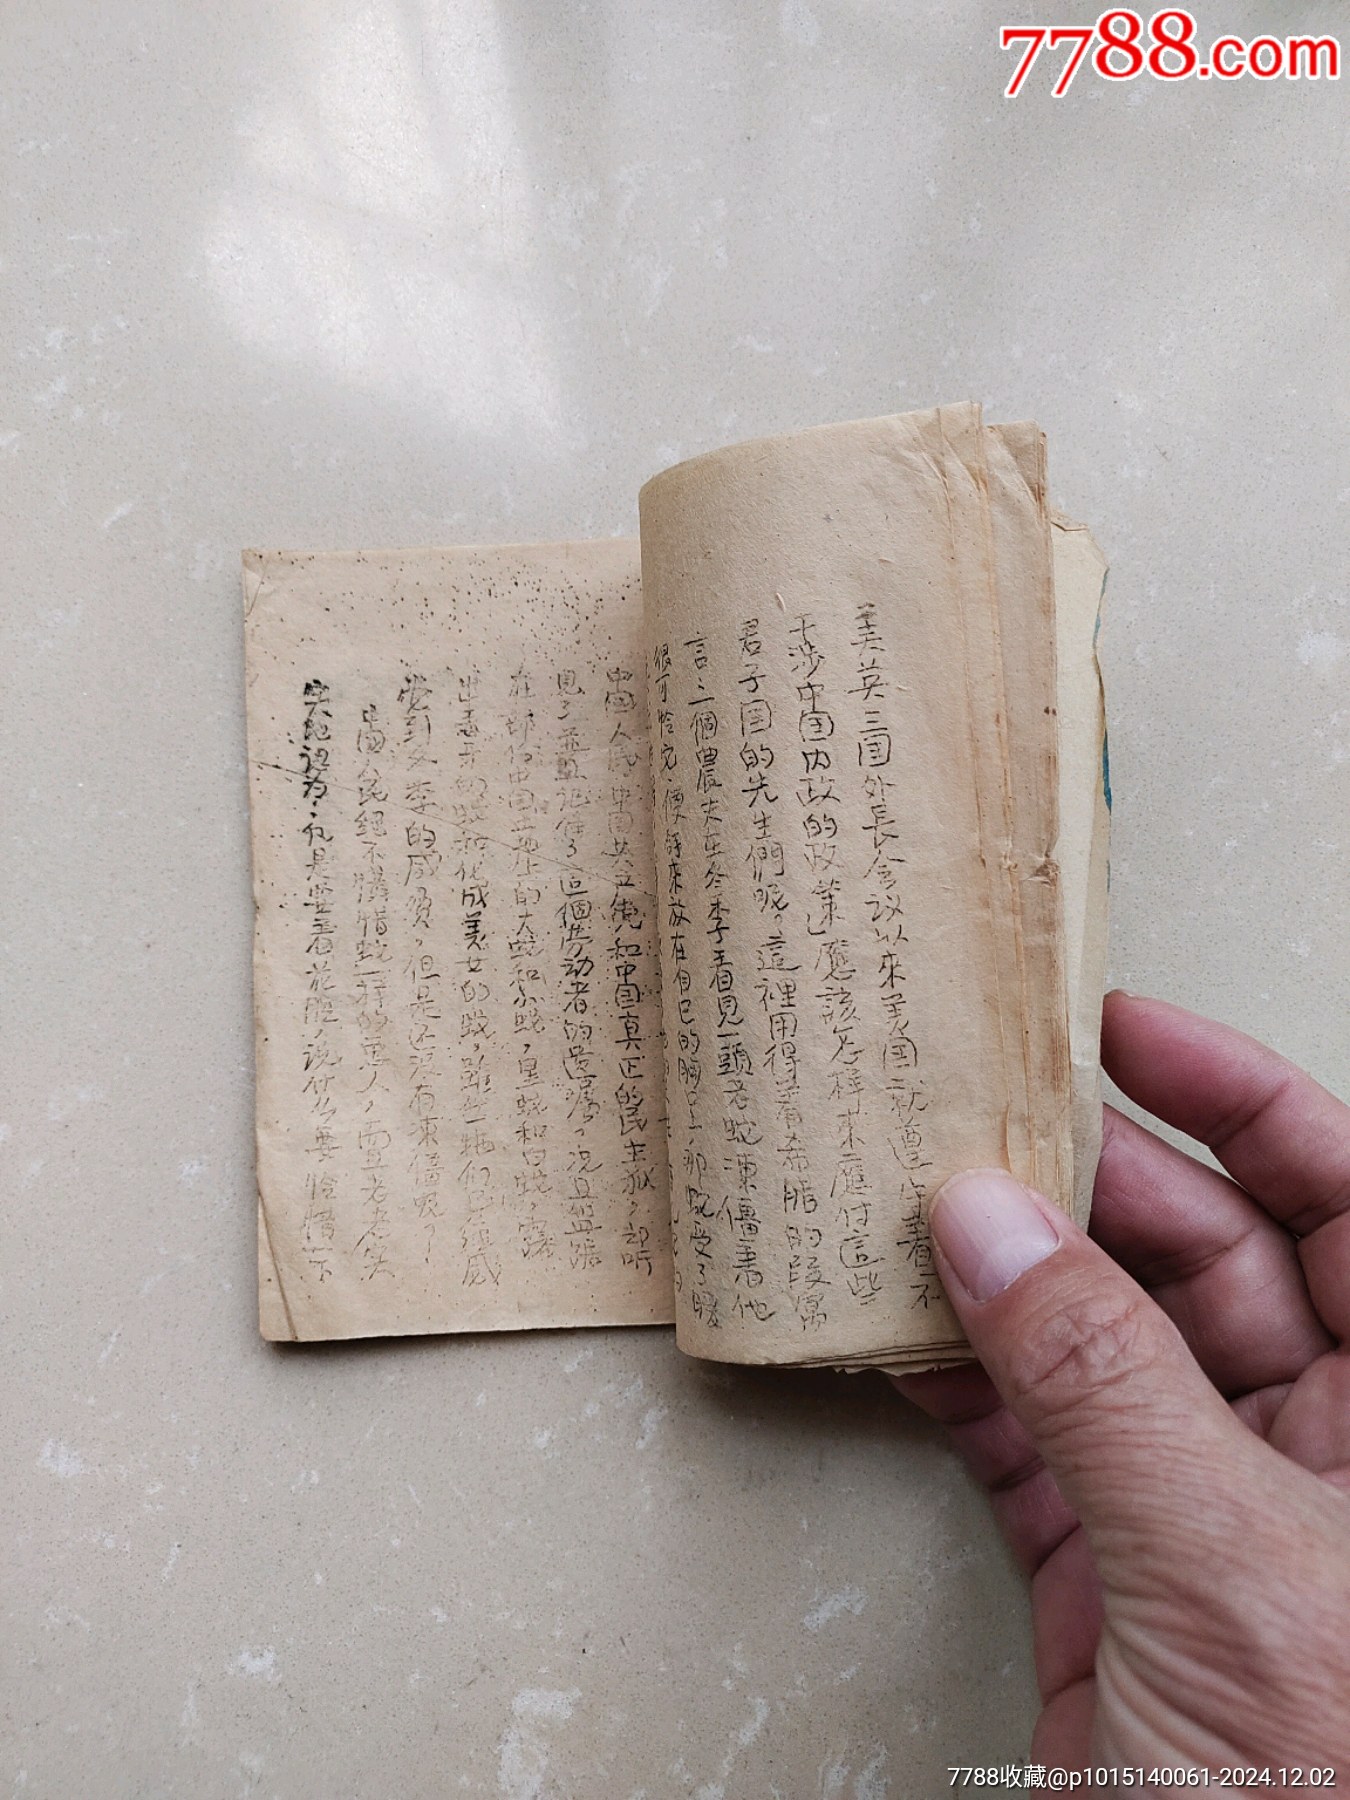 7788.com
美英三国外長会议以來美国就遵守着不
干涉中国内政的政策」應該怎样來應付這些
君子国的先生們呢。這裡用得着希腊的段寓
言：一個農夫在冬季看見一頭老蛇凍僵着他
很可怜它，便拜來放在自己的胸口上，那蛇受了暖
中國人民，中国共产党和中国真正的民主派，却听
見了並且记住了这個劳动者的遗嘱。况且盤踞
在部份中国土地上的大蛇和小蛇，皇蛇和白蛇，露
出毒牙的蛇和化成美女的蛇，雖然牠們已经感
觉到冬季的威脅，但是还没有凍僵呢？
中國人民绝不憐惜蛇一样的惡人，而且老老实
实地認为：凡是要着花腔，说什么要怜惜一下
7788收藏@p1015140061-2024.12.02